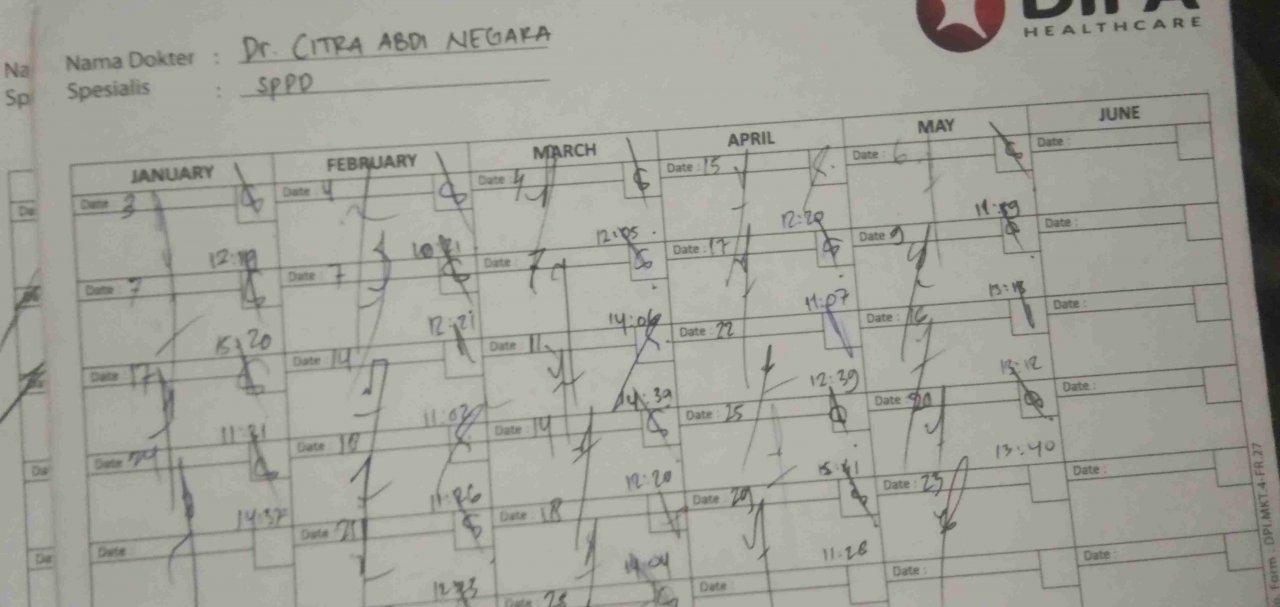 HEALTHCARE
Nama Dokter : Dr. CITRA ABDI NEGARA
Spesialis : SPPD
JANUARY FEBRUARY MARCH APRIL MAY JUNE
Date 3 Date 4 Date 4 Date : 15 Date : 6 Date :
12:19 10:21 12:05 12:20 11:59
Date : 7 Date : 7 Date : 7 Date : 17 Date : 9 Date :
15:20 12:21 14:06 11:07 13:13
Date : 17 Date 14 Date : 11 Date : 22 Date : 16 Date :
11:21 11:02 14:39 12:39 13:12
Date : 24 Date : 18 Date : 14 Date : 25 Date : 20 Date :
14:37 11:26 12:20 15:41 13:40
Date : Date : 21 Date : 18 Date : 29 Date : 23 Date :
14:04 11:28
Date : Date : Date : Date :
Form : DPI.MKT.4-FR.27